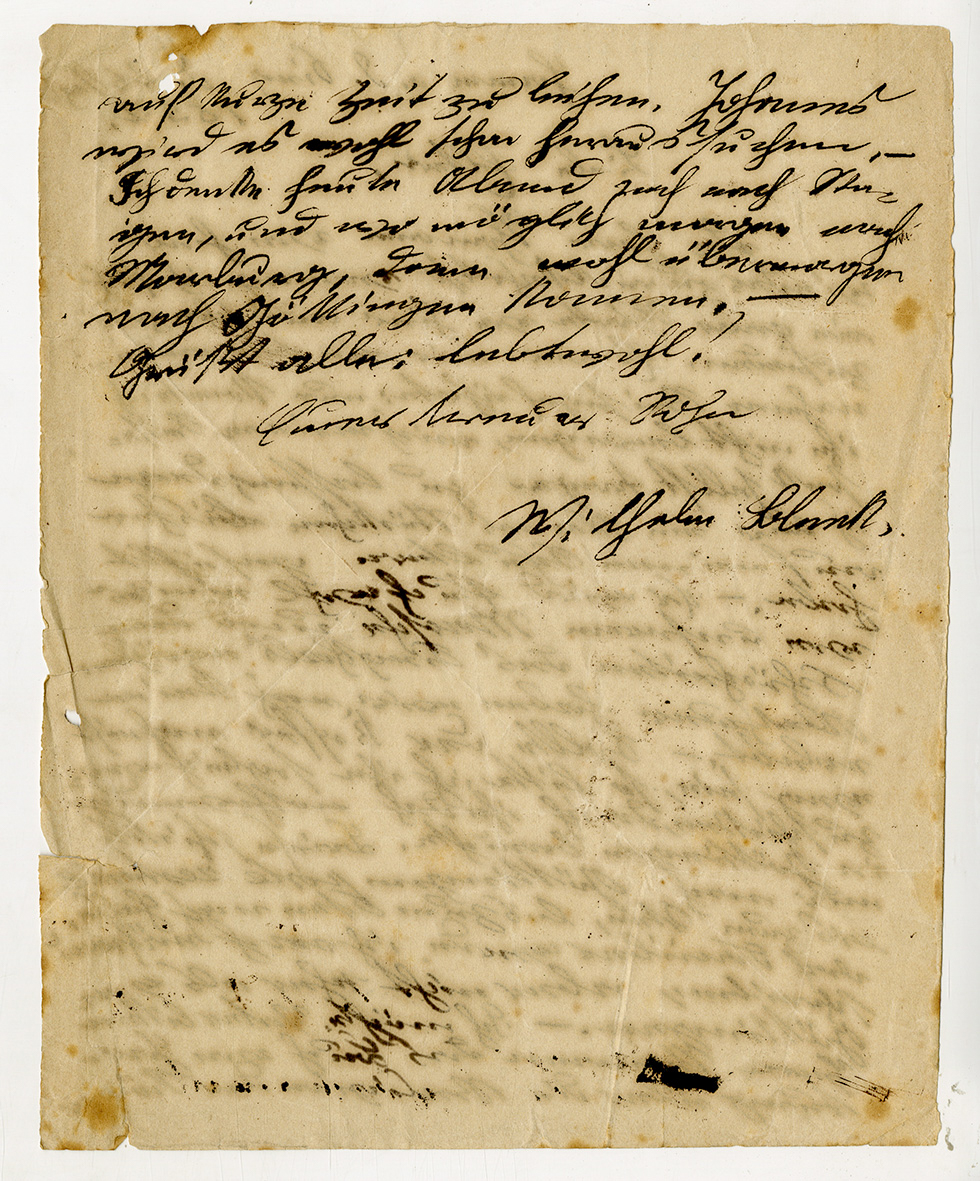 auf kurze Zeit zu leihen. Johannes
wird es wohl schon heraussuchen. —
Ich denke heute Abend noch nach
und wo möglich morgen nach
Marburg, dann wohl übermorgen
nach Göttingen kommen. —
Grüßt alle; lebtwohl!
Euer treuer Sohn
Wilhelm Blank.